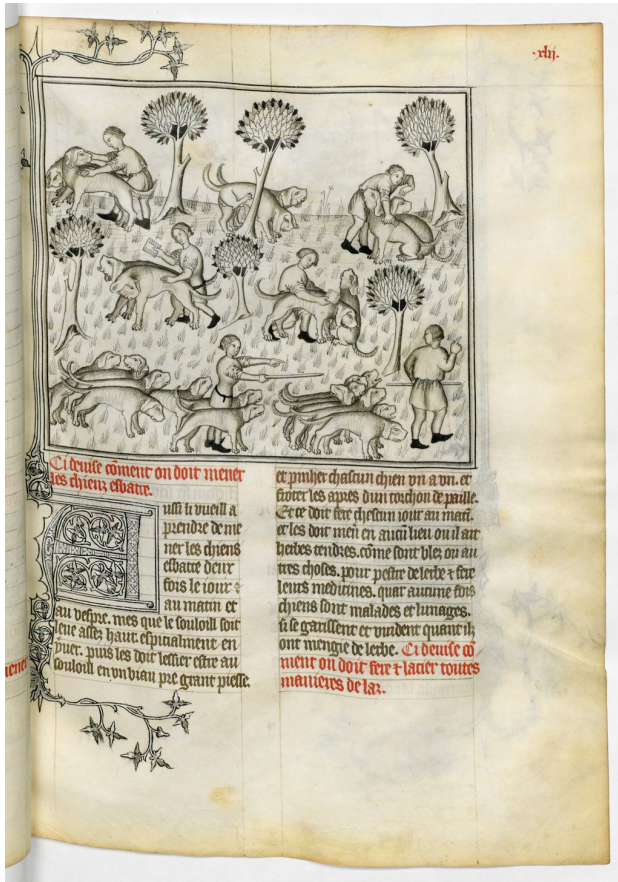 ·xlij.
Ci deuise cōment on doit mener
les chienz esbatre.
ussi li vueill a
prendre de me
ner les chiens
esbatre deux
fois le iour ⁊
au matin et
au vespre. mes que le souloill soit
leue assez haut. espicialment en
yuer. puis les doit lessier estre au
souloill en vn biau pre grant piesse.
et pinher chascun chien vn a vn. et
froter les apres dun torchon de paille.
Et ce doit fere chescun iour au matī.
et les doit men en aucū lieu ou il ait
herbes tendres. cōme sont blez ou au
tres choses. pour pestre de lerbe ⁊ fere
leurs medicines. quar aucune fois
chiens sont malades et
si se garissent et vuident quant ilz
ont mengie de lerbe. Ci deuise cō
ment on doit fere ⁊ lacier toutes
manieres de laz.
mener